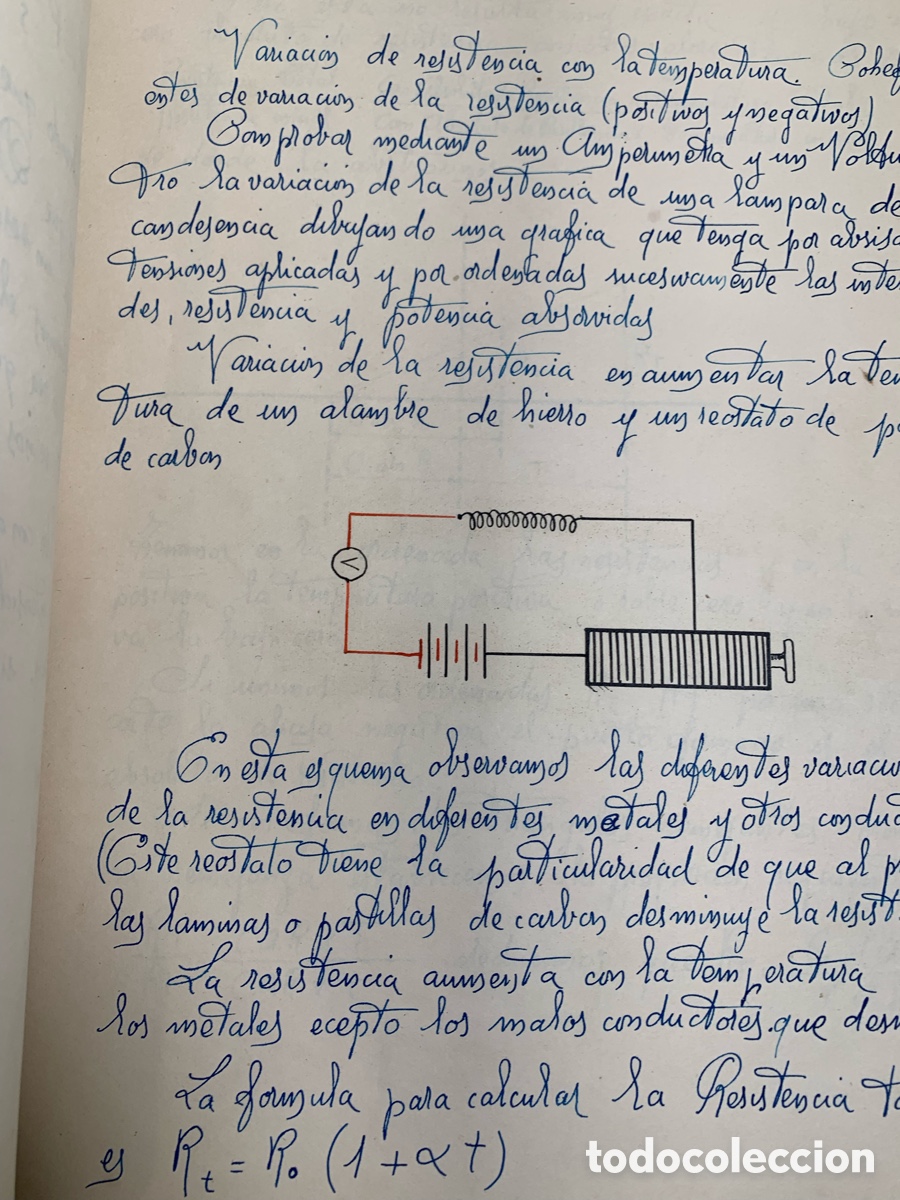 Variación de resistencia con la temperatura. Cohefi
entes de variación de la resistencia (positivos y negativos)
Comprobar mediante un Amperimetra y un Voltu
tro la variacion de la resistencia de una lampara de
candesencia dibujando una grafica que tenga por absisa
tensiones aplicadas y por ordenadas sucesivamente las inte
des, resistencia y potencia absorvidas
Variación de la resistencia en aumentar la tem
tura de un alambre de hierro y un reostato de p
de carbon
V
En esta esquema observamos las diferentes variacio
de la resistencia en diferentes metales y otros conduc
(Este reostato tiene la particularidad de que al pr
las laminas o pastillas de carbon desminuye la resist
La resistencia aumenta con la temperatura
los metales ecepto los malos conductores que desm
La formula para calcular la Resistencia to
es Rt = Ro (1 + α t)
todocoleccion